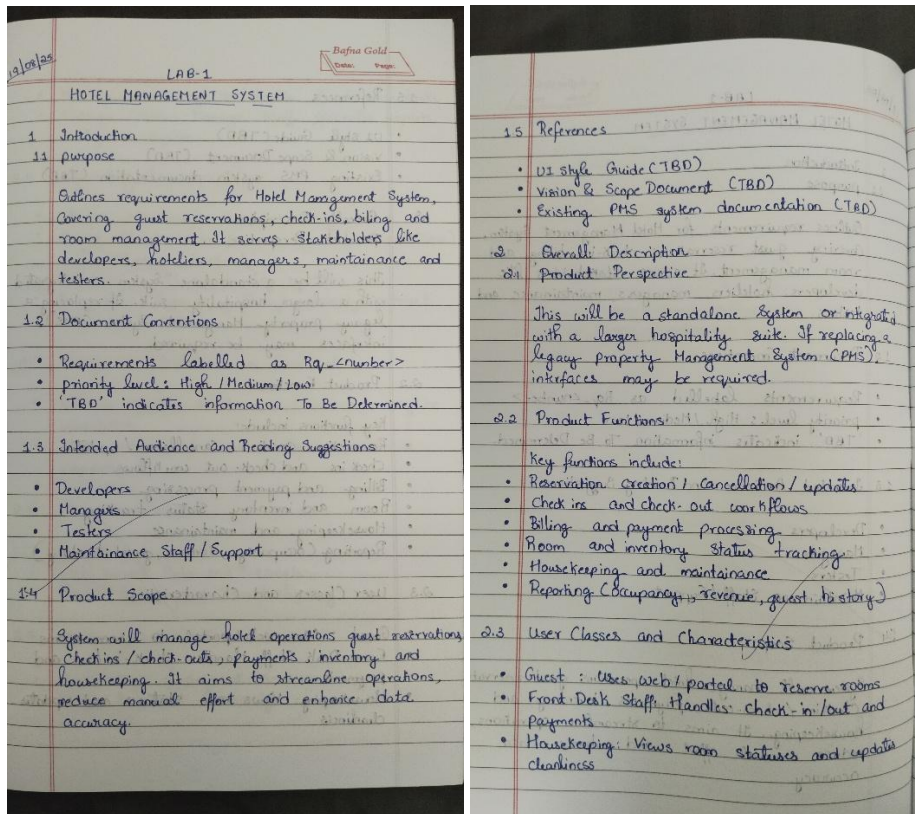 19/08/25
Bafna Gold
Date: Page:
LAB-1
HOTEL MANAGEMENT SYSTEM
1 Introduction
1.1 purpose
Outlines requirements for Hotel Management System,
Covering guest reservations, check-ins, biling and
room management. It serves stakeholders like
developers, hoteliers, managers, maintainance and
testers.
1.2 Document Conventions
• Requirements labelled as Rq-<number>
• priority level: High / Medium / Low
• 'TBD' indicates information To Be Determined.
1.3 Intended Audience and Reading Suggestions
• Developers
• Managers
• Testers
• Maintainance Staff / Support
1.4 Product Scope
System will manage hotel operations guest reservations,
checkins / check-outs, payments, inventory and
housekeeping. It aims to streamline operations,
reduce manual effort and enhance data
accuracy.
1.5 References
• UI style Guide (TBD)
• Vision & Scope Document (TBD)
• Existing PMS system documentation (TBD)
2 Overall Description
2.1 Product Perspective
This will be a standalone System or integrated
with a larger hospitality suite. If replacing a
legacy property Management System (PMS),
interfaces may be required.
2.2 Product Functions
Key functions include:
• Reservation creation / cancellation / updates
• Check ins and check-out workflows
• Billing and payment processing
• Room and inventory status tracking
• Housekeeping and maintainance
• Reporting (occupancy, revenue, guest history)
2.3 User Classes and Characteristics
• Guest : Uses web / portal to reserve rooms
• Front Desk Staff: Handles check-in /out and
payments
• Housekeeping: Views room statuses and updates
cleanliness